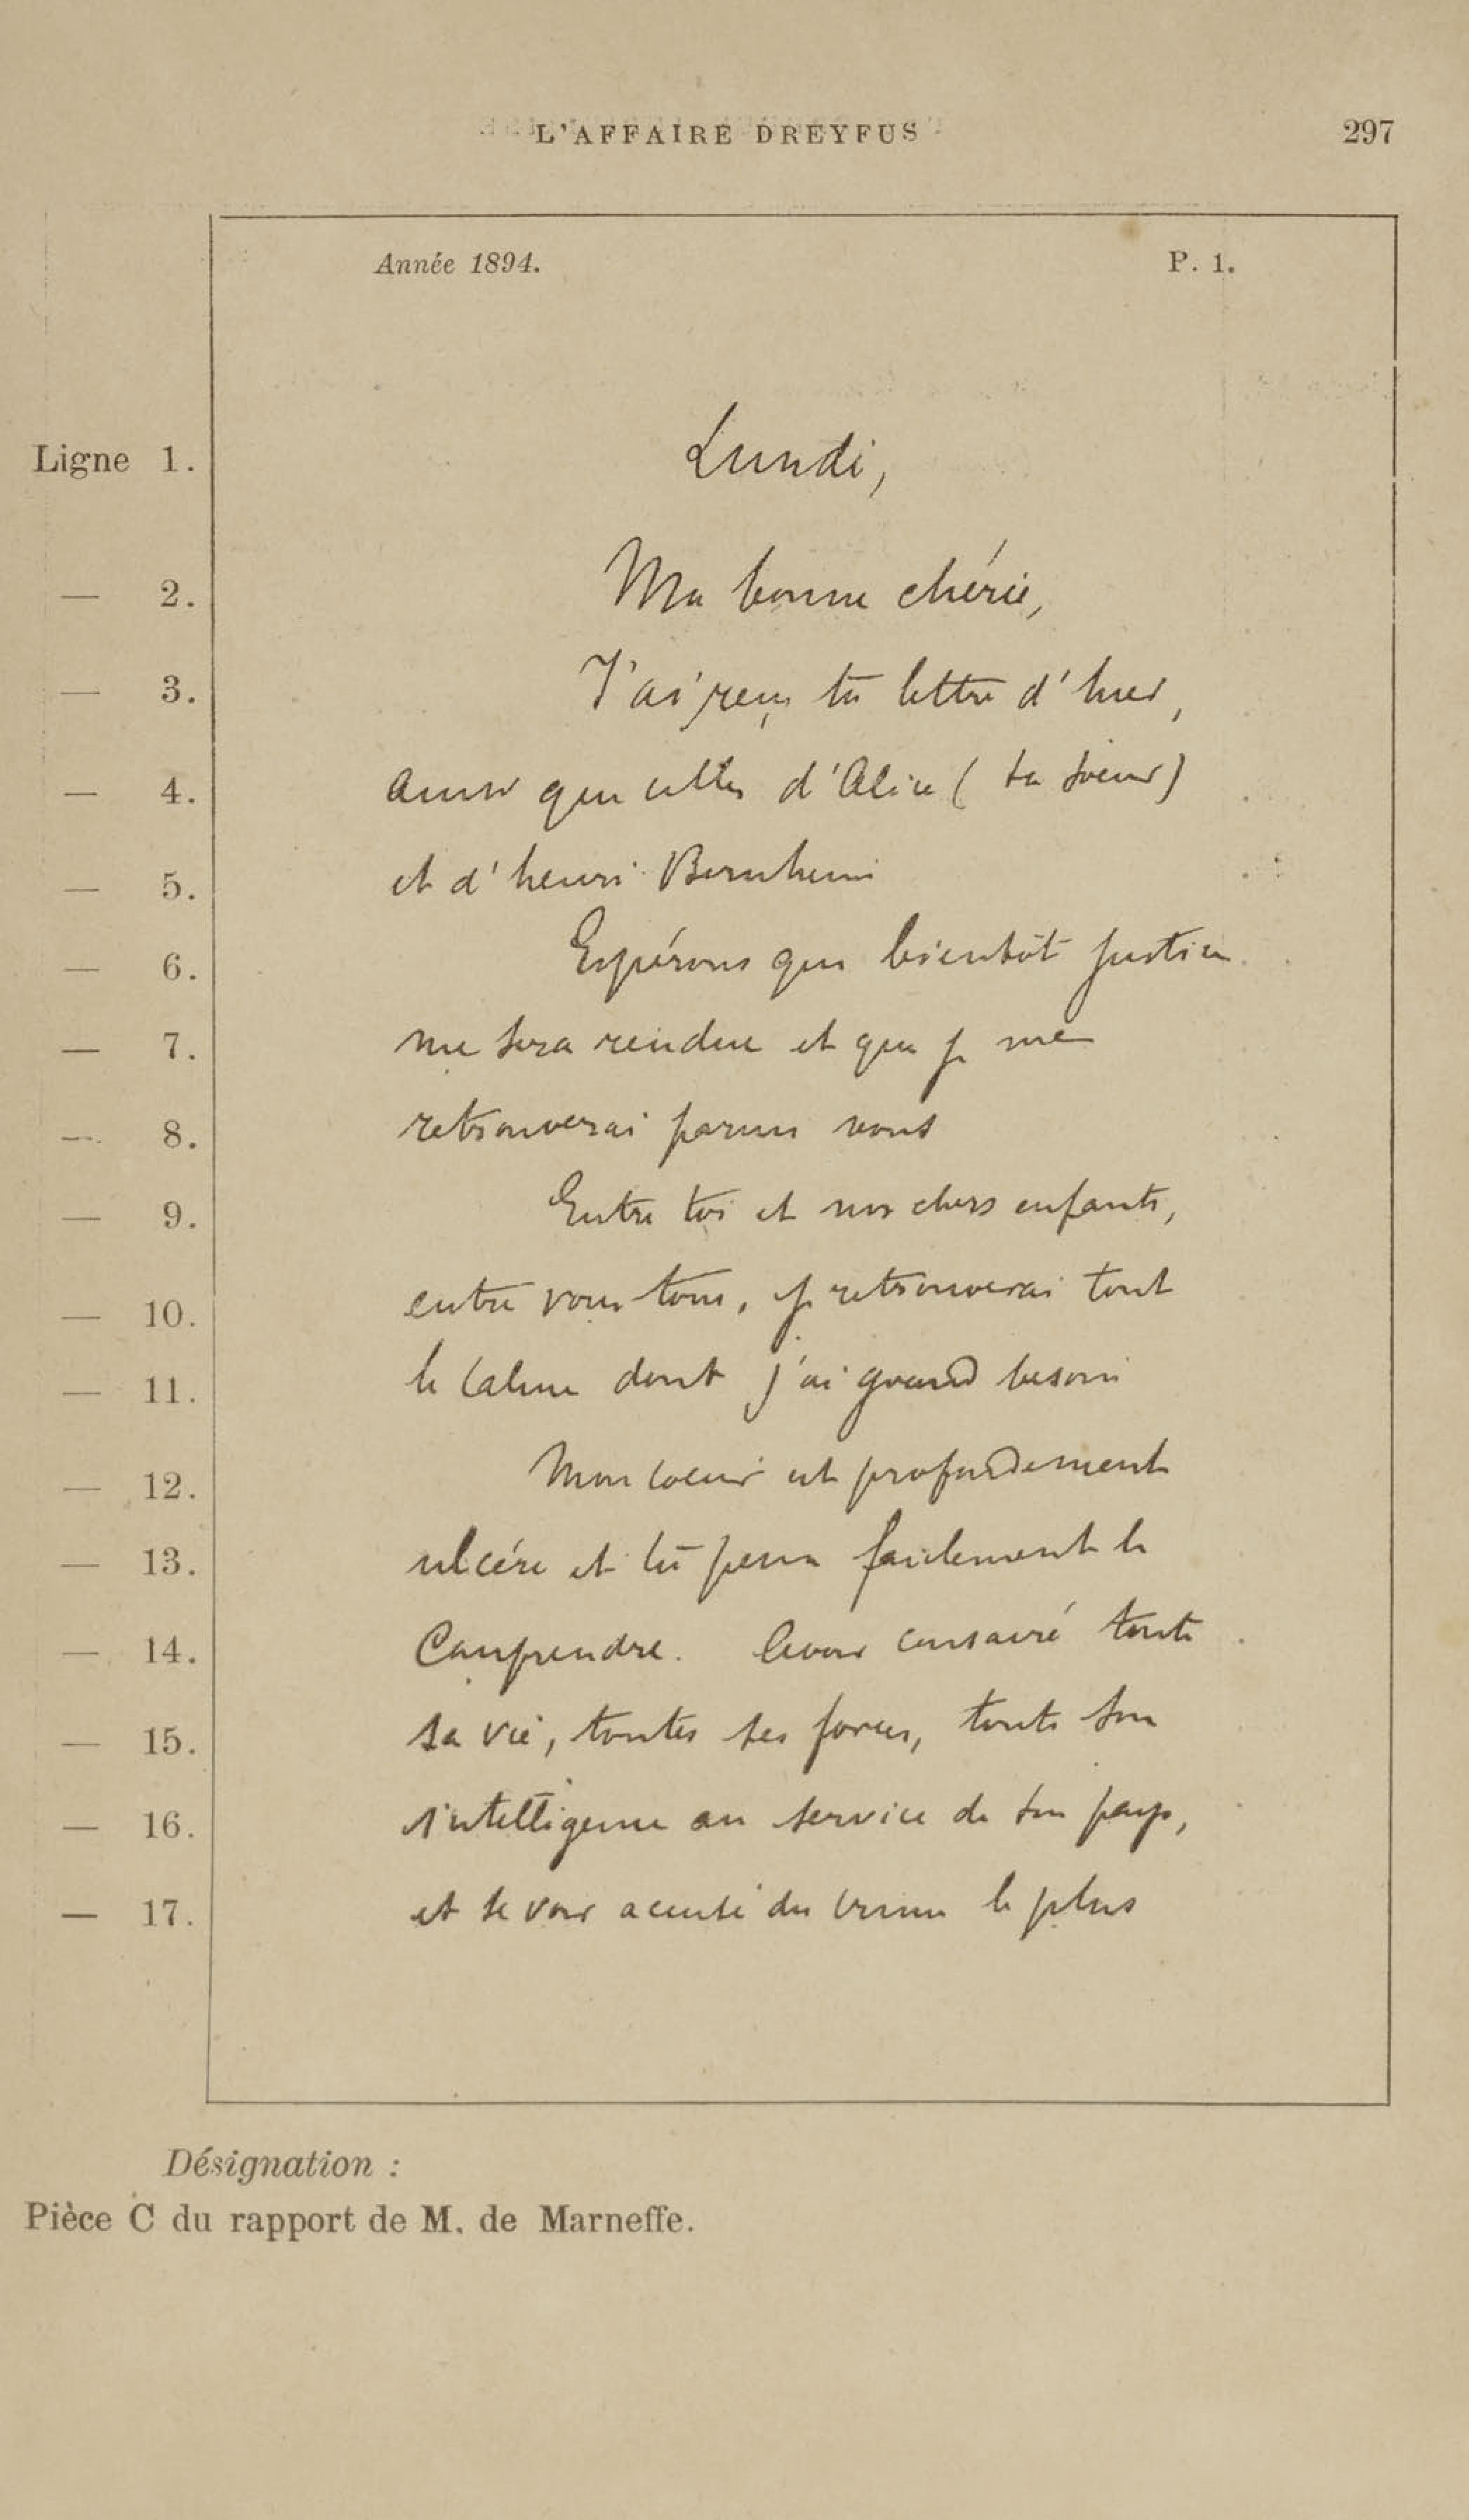 L'AFFAIRE DREYFUS 297
Année 1894. P. 1.
Ligne 1. Lundi,
— 2. Ma bonne chérie,
— 3. J'ai reçu ta lettre d'hier,
— 4. ainsi que celles d'Alice (ta sœur)
— 5. et d'henri Bernheim
— 6. Espérons que bientôt justice
— 7. me sera rendue et que je me
— 8. retrouverai parmi vous
— 9. Entre toi et nos chers enfants,
— 10. entre vous tous, je retrouverai tout
— 11. le calme dont j'ai grand besoin
— 12. Mon cœur est profondement
— 13. ulcéré et tu peux facilement le
— 14. Comprendre. Avoir consacré toute
— 15. sa vie, toutes ses forces, toute son
— 16. intelligence au service de son pays,
— 17. et se voir accusé du crime le plus
Désignation :
Pièce C du rapport de M. de Marneffe.